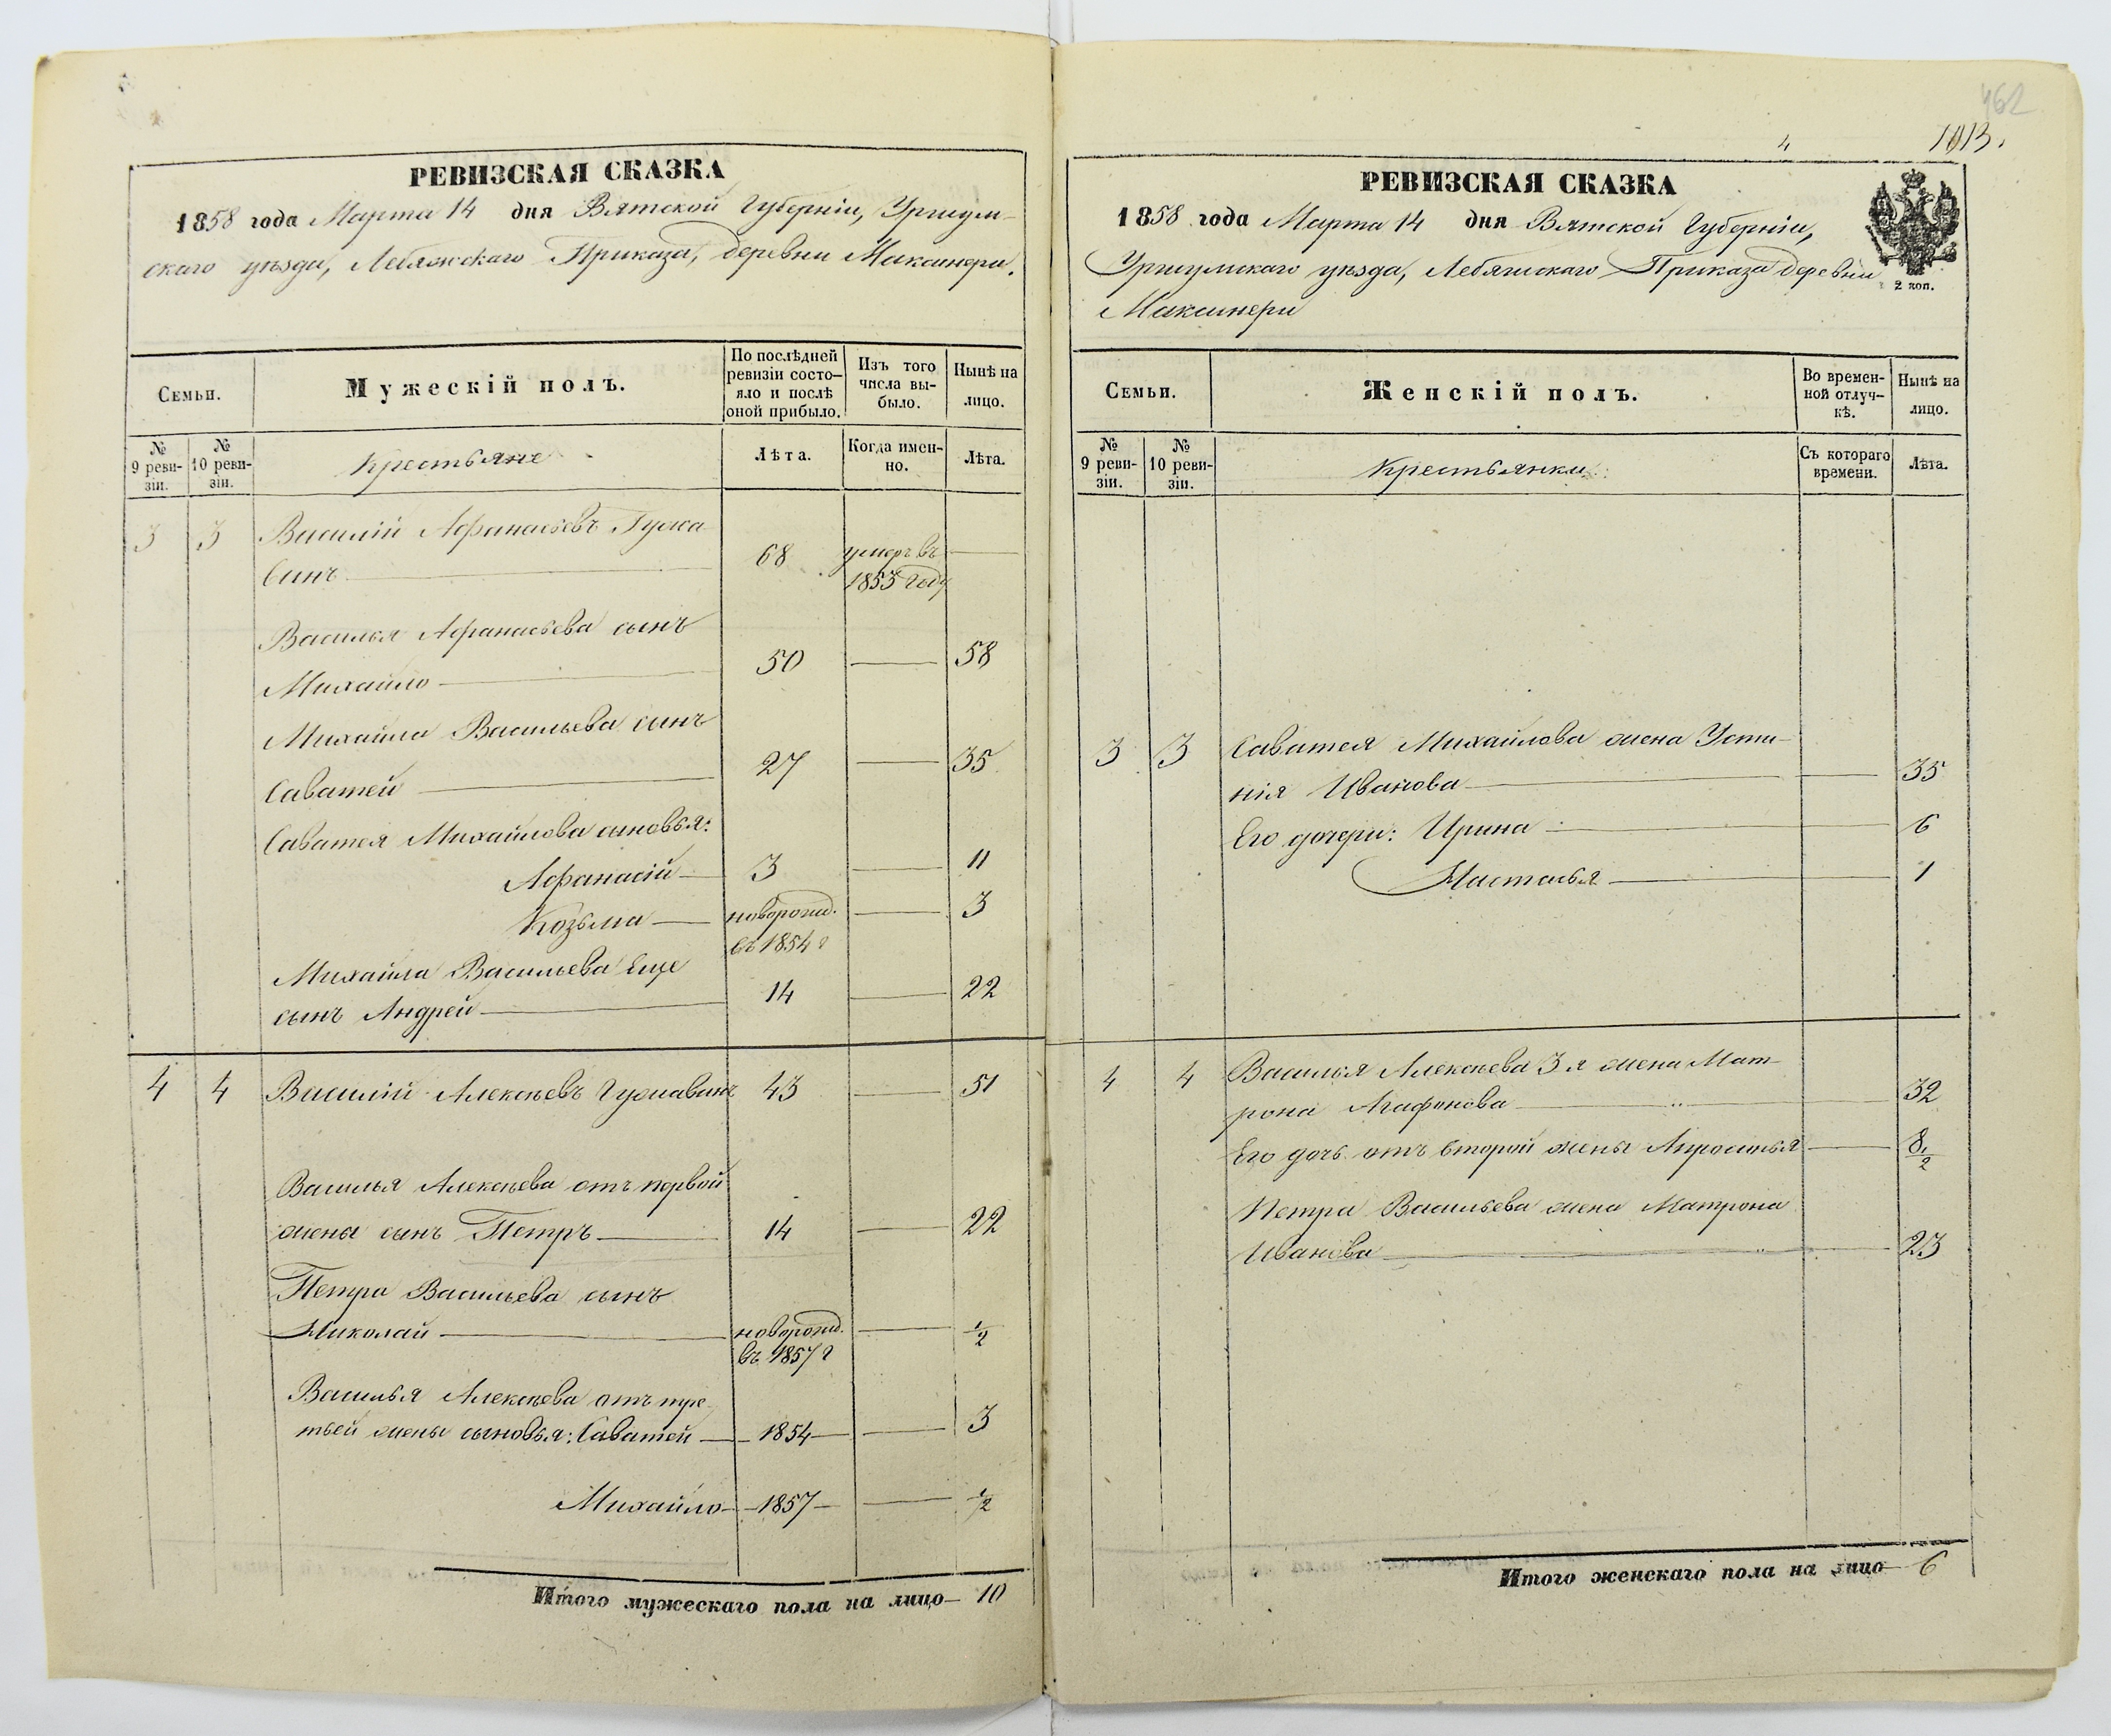 РЕВИЗСКАЯ СКАЗКА
1858 года Марта 14 дня Вятской Губерніи, Уржум-
скаго уѣзда, Лебяжскаго Приказа, деревни Максинери.
Семьи.
Мужескій полъ.
По послѣдней
ревизіи состо-
яло и послѣ
оной прибыло.
Изъ того
числа вы-
было.
Нынѣ на
лицо.
№
9 реви-
зіи.
№
10 реви-
зіи.
Крестьяне
Лѣта.
Когда имен-
но.
Лѣта.
3 3 Василій Афанасьевъ Гужа
винъ 68 умеръ въ
1853 году
Василья Афанасьева сынъ
Михайло 50 58
Михайла Васильева сынъ
Саватей 27 35
Саватея Михайлова сыновья:
Афанасій 3 11
Козьма новорожд. 3
въ 1854 г
Михайла Васильева еще
сынъ Андрей 14 22
4 4 Василій Алексѣевъ Гужавинъ 43 51
Василья Алексѣева отъ первой
жены сынъ Петръ 14 22
Петра Васильева сынъ
Николай новорожд. 1/2
въ 1857 г
Василья Алексѣева отъ тре
тьей жены сыновья: Саватей 1854 3
Михайло 1857 1/2
Итого мужескаго пола на лицо 10
462
4 1013.
РЕВИЗСКАЯ СКАЗКА
1858 года Марта 14 дня Вятской Губерніи,
Уржумскаго уѣзда, Лебяжскаго Приказа деревни
Максинери
2 коп.
Семьи.
Женскій полъ.
Во времен-
ной отлуч-
кѣ.
Нынѣ на
лицо.
№
9 реви-
зіи.
№
10 реви-
зіи.
Крестьянки
Съ котораго
времени.
Лѣта.
3 3 Саватея Михайлова жена Усти-
нія Иванова 35
Его дочери: Ирина 6
Настасья 1
4 4 Василья Алексѣева 3я жена Мат-
рона Агафонова 32
Его дочь отъ второй жены Апросинья 8 1/2
Петра Васильева жена Матрона
Иванова 23
Итого женскаго пола на лицо 6